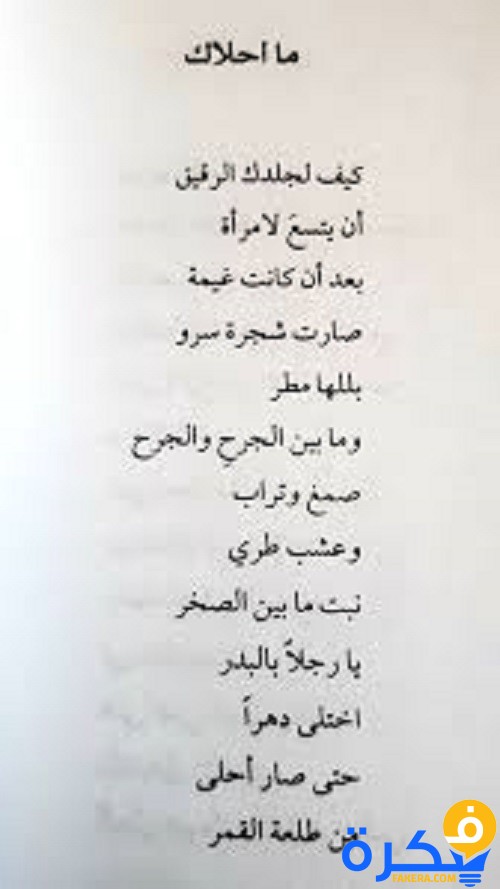 ما احلاك
كيف لجلدك الرقيق
أن يتسعَ لامرأة
بعد أن كانت غيمة
صارت شجرة سرو
بللها مطر
وما بين الجرحِ والجرح
صمغ وتراب
وعشب طري
نبت ما بين الصخر
يا رجلاً بالبدر
اختلى دهراً
حتى صار أحلى
من طلعة القمر
فكرة
FAKERA.COM